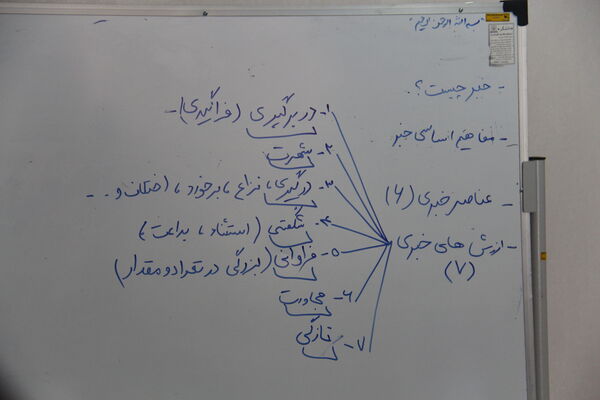 بسم الله الرحمن الرحیم
- خبر چیست؟
- مفاهیم اساسی خبر
- عناصر خبری (۶)
- ارزش های خبری (۷)
۱- دربرگیری (فراگیری) -
۲- شهرت
۳- درگیری، نزاع، برخورد، اختلاف و ...
۴- شگفتی (استثناء، بداعت)
۵- فراوانی (بزرگی در تعداد و مقدار)
۶- مجاورت
۷- تازگی